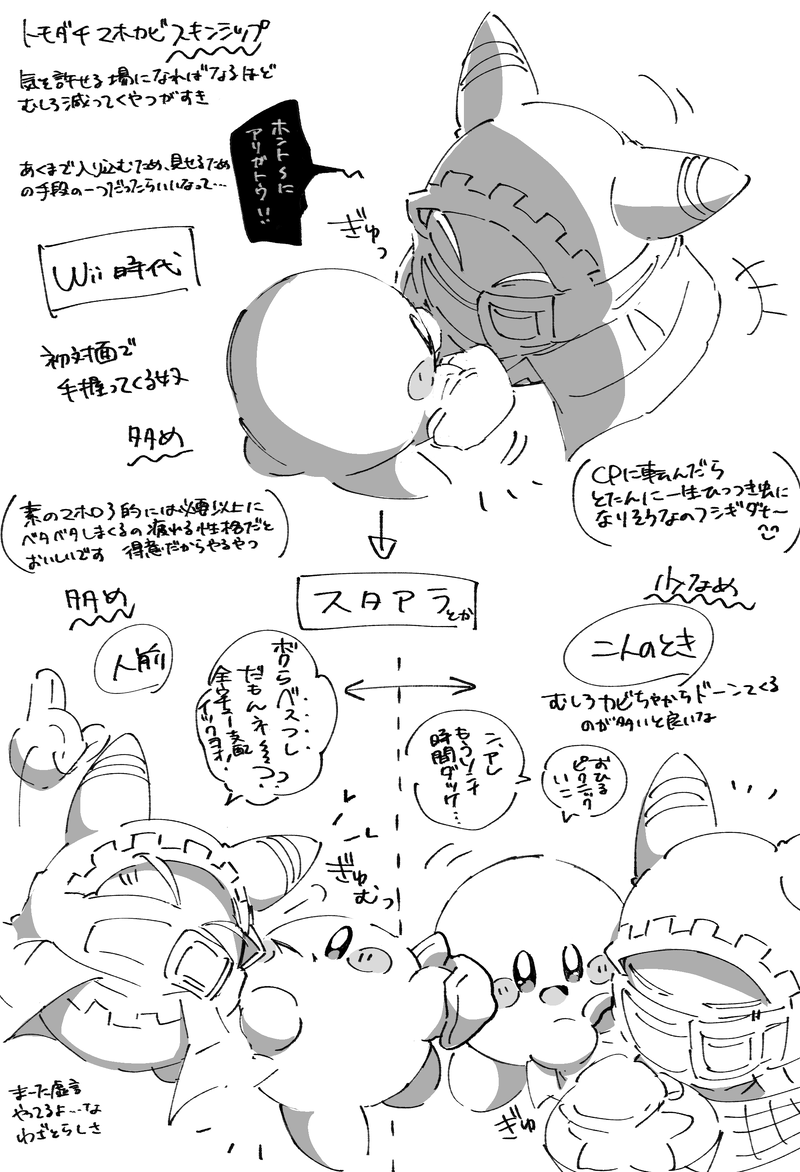 トモダチマホカビスキンシップ
気を許せる場になればなるほど
むしろ減ってくやつがすき
あくまで入り込むため、見せるため
の手段の一つだったらいいなって…
ホント〜に
アリガトウ!!
ぎゅっ
Wii時代
初対面で
手握ってくる奴
多め
(素のマホロア的には必要以上に
ベタベタしまくるの疲れる性格だと
おいしいです 得意だからやるやつ)
(CPに転んだら
とたんに一生ひっつき虫に
なりそうなのフシギダネ〜)
スタアラとか
多め
人前
ボクらベスフレ
だもんネ〜〜っ
全ウチュー支配
イックヨォ!
ぎゅむっ
まーた虚言
やってるよ…な
わざとらしさ
少なめ
二人のとき
むしろカビちゃからドーンてくる
のが多いと良いな
ン、アレ
もうソンナ
時間ダッケ…
おひる
ピクニック
いこ
ぎゅ